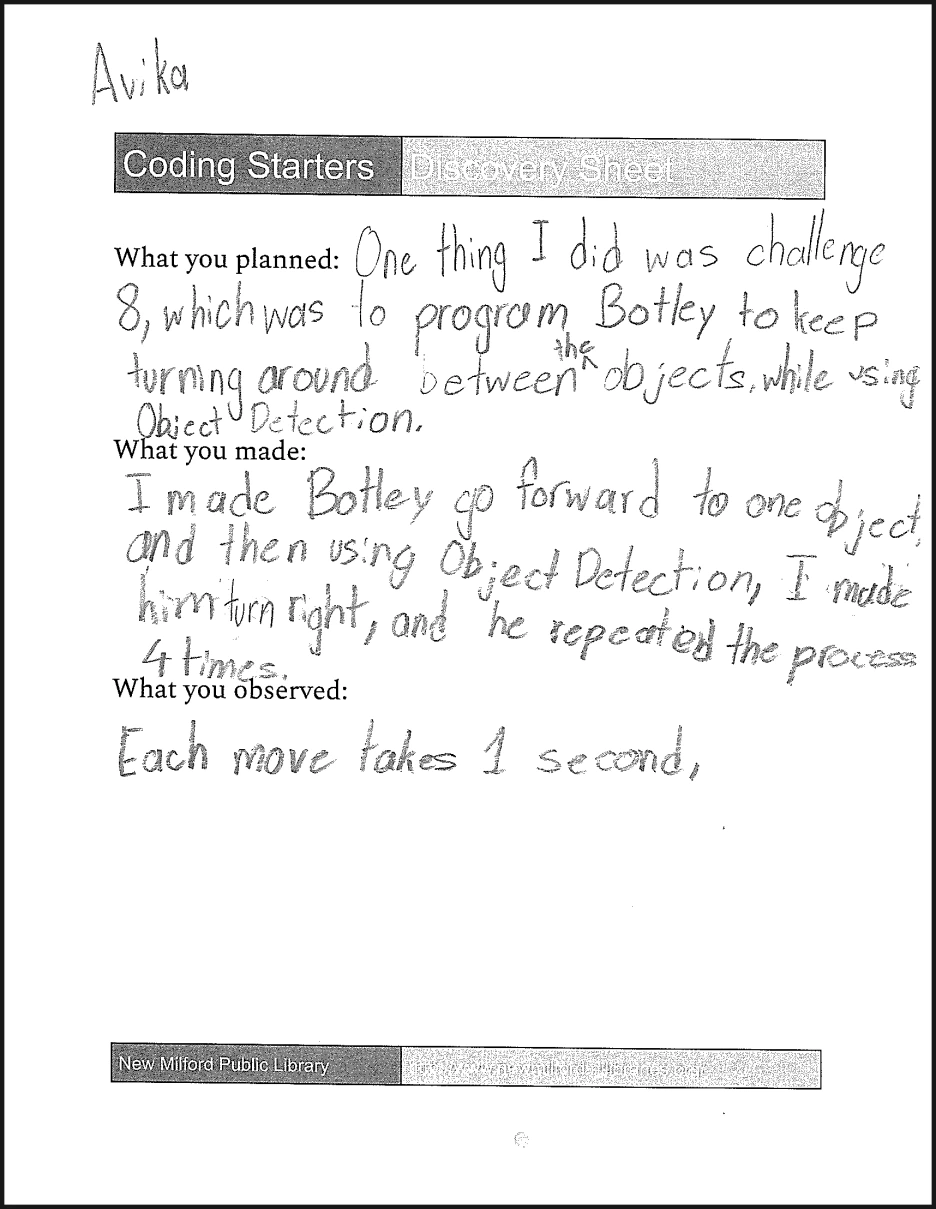 Avika
Coding Starters Discovery Sheet
What you planned: One thing I did was challenge
8, which was to program Botley to keep
the
turning around between ^ objects, while using
Object Detection.
What you made:
I made Botley go forward to one object,
and then using Object Detection, I made
him turn right, and he repeated the process
4 times.
What you observed:
Each move takes 1 second,
New Milford Public Library